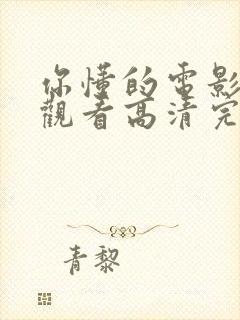 你懂的电影
觀看高清完
青黎